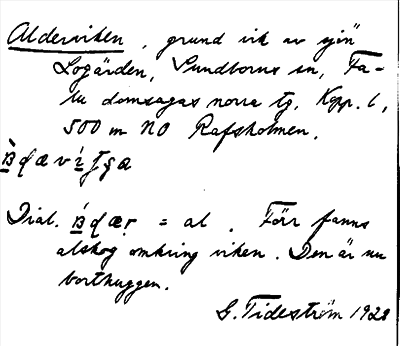 Alderviken, grund vik av sjön
Logärden, Sundborns sn, Fa-
lu domsagas norra tg, Kopp. l,
500 m NO Rafsholmen.
Dial. = al. Förr fanns
alskog omkring viken. Den är nu
borthuggen.
G. Tideström 1928